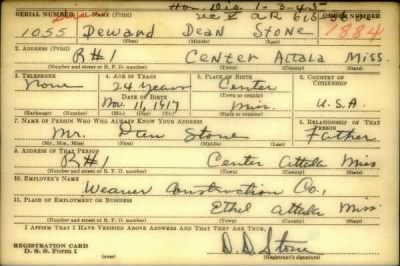 Hon. Dis. 1-3-45
SERIAL NUMBER 1. NAME (Print) ORDER NUMBER
1055 Deward Dean Stone 1884
2. ADDRESS (Print)
R#1 Center Attala Miss.
(Number and street or R. F. D. number) (Town) (County) (State)
3. TELEPHONE 4. AGE IN YEARS 5. PLACE OF BIRTH 6. COUNTRY OF CITIZENSHIP
None 24 Years Center
DATE OF BIRTH (Town or county)
Nov. 11, 1917 Miss. U.S.A.
(Exchange) (Number) (Mo.) (Day) (Yr.) (State or country)
7. NAME OF PERSON WHO WILL ALWAYS KNOW YOUR ADDRESS 8. RELATIONSHIP OF THAT PERSON
Mr. Dan Stone Father
(Mr., Mrs., Miss) (First) (Middle) (Last)
9. ADDRESS OF THAT PERSON
R#1 Center Attala Miss
(Number and street or R. F. D. number) (Town) (County) (State)
10. EMPLOYER'S NAME
Weaver Construction Co.,
11. PLACE OF EMPLOYMENT OR BUSINESS
Ethel Attala Miss.
(Number and street or R. F. D. number) (Town) (County) (State)
I AFFIRM THAT I HAVE VERIFIED ABOVE ANSWERS AND THAT THEY ARE TRUE.
REGISTRATION CARD
D. S. S. Form 1 D. D. Stone
(Registrant's signature)